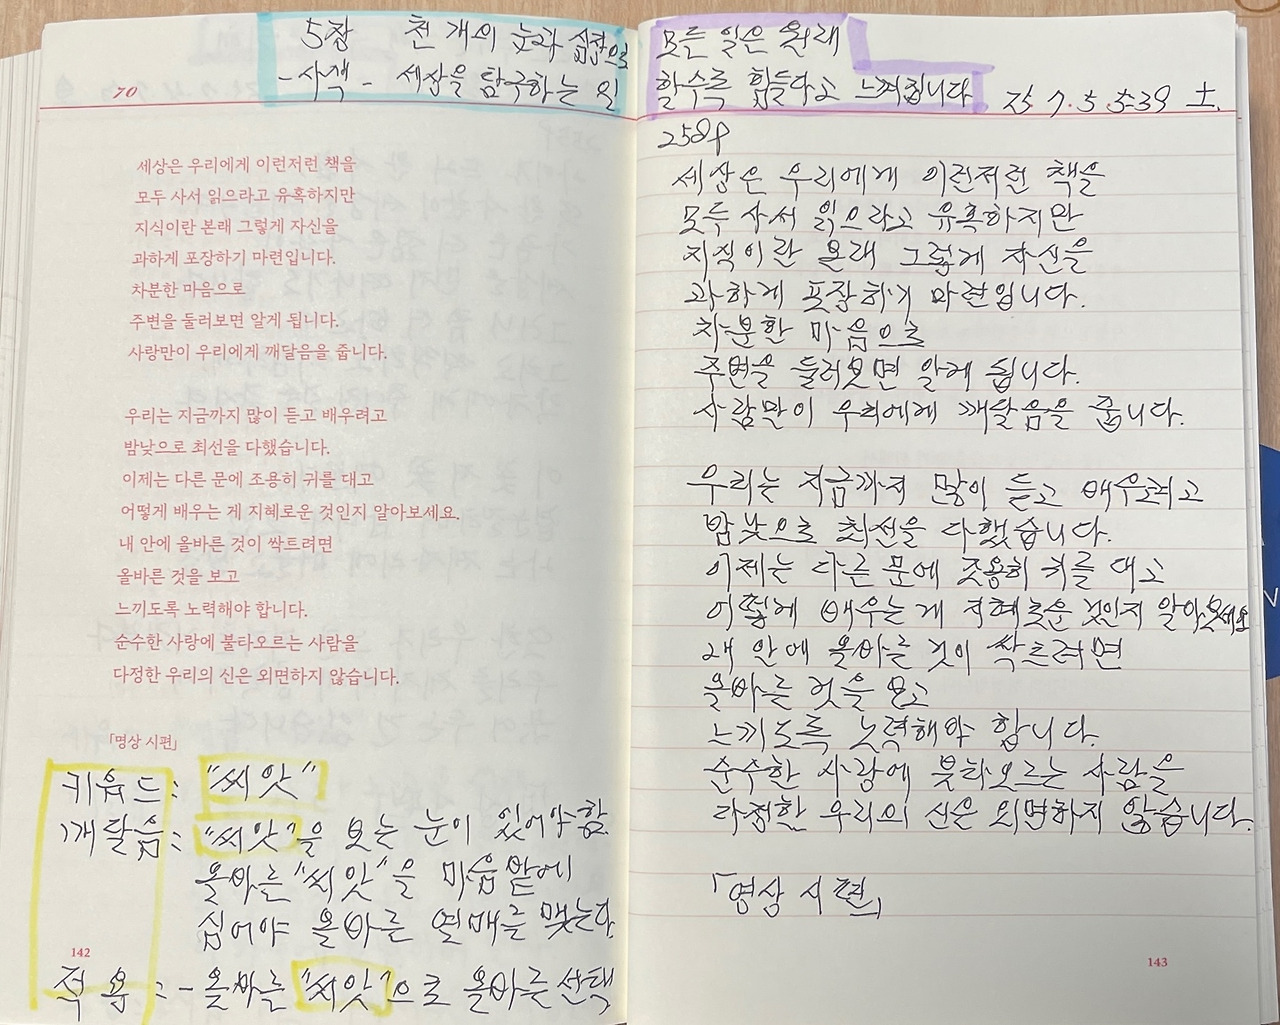 5장 천 개의 눈과 심장으로
- 사색 - 세상을 탐구하는 일
70
세상은 우리에게 이런저런 책을
모두 사서 읽으라고 유혹하지만
지식이란 본래 그렇게 자신을
과하게 포장하기 마련입니다.
차분한 마음으로
주변을 둘러보면 알게 됩니다.
사랑만이 우리에게 깨달음을 줍니다.
우리는 지금까지 많이 듣고 배우려고
밤낮으로 최선을 다했습니다.
이제는 다른 문에 조용히 귀를 대고
어떻게 배우는 게 지혜로운 것인지 알아보세요.
내 안에 올바른 것이 싹트려면
올바른 것을 보고
느끼도록 노력해야 합니다.
순수한 사랑에 불타오르는 사람을
다정한 우리의 신은 외면하지 않습니다.
「명상 시편」
키워드 : "씨앗"
깨달음 : "씨앗"을 보는 눈이 있어야 함.
올바른 "씨앗"을 마음밭에
심어야 올바른 열매를 맺는다.
142
적 용 : - 올바른 "씨앗"으로 올바른 선택
모든 일은 원래
할수록 힘들다고 느껴집니다
25 7. 5 5:39 土.
258P
세상은 우리에게 이런저런 책을
모두 사서 읽으라고 유혹하지만
지식이란 본래 그렇게 자신을
과하게 포장하기 마련입니다.
차분한 마음으로
주변을 둘러보면 알게 됩니다.
사랑만이 우리에게 깨달음을 줍니다.
우리는 지금까지 많이 듣고 배우려고
밤낮으로 최선을 다했습니다.
이제는 다른 문에 조용히 귀를 대고
어떻게 배우는 게 지혜로운 것인지 알아보세요
내 안에 올바른 것이 싹트려면
올바른 것을 보고
느끼도록 노력해야 합니다.
순수한 사랑에 불타오르는 사람을
다정한 우리의 신은 외면하지 않습니다.
「명상 시편」
143